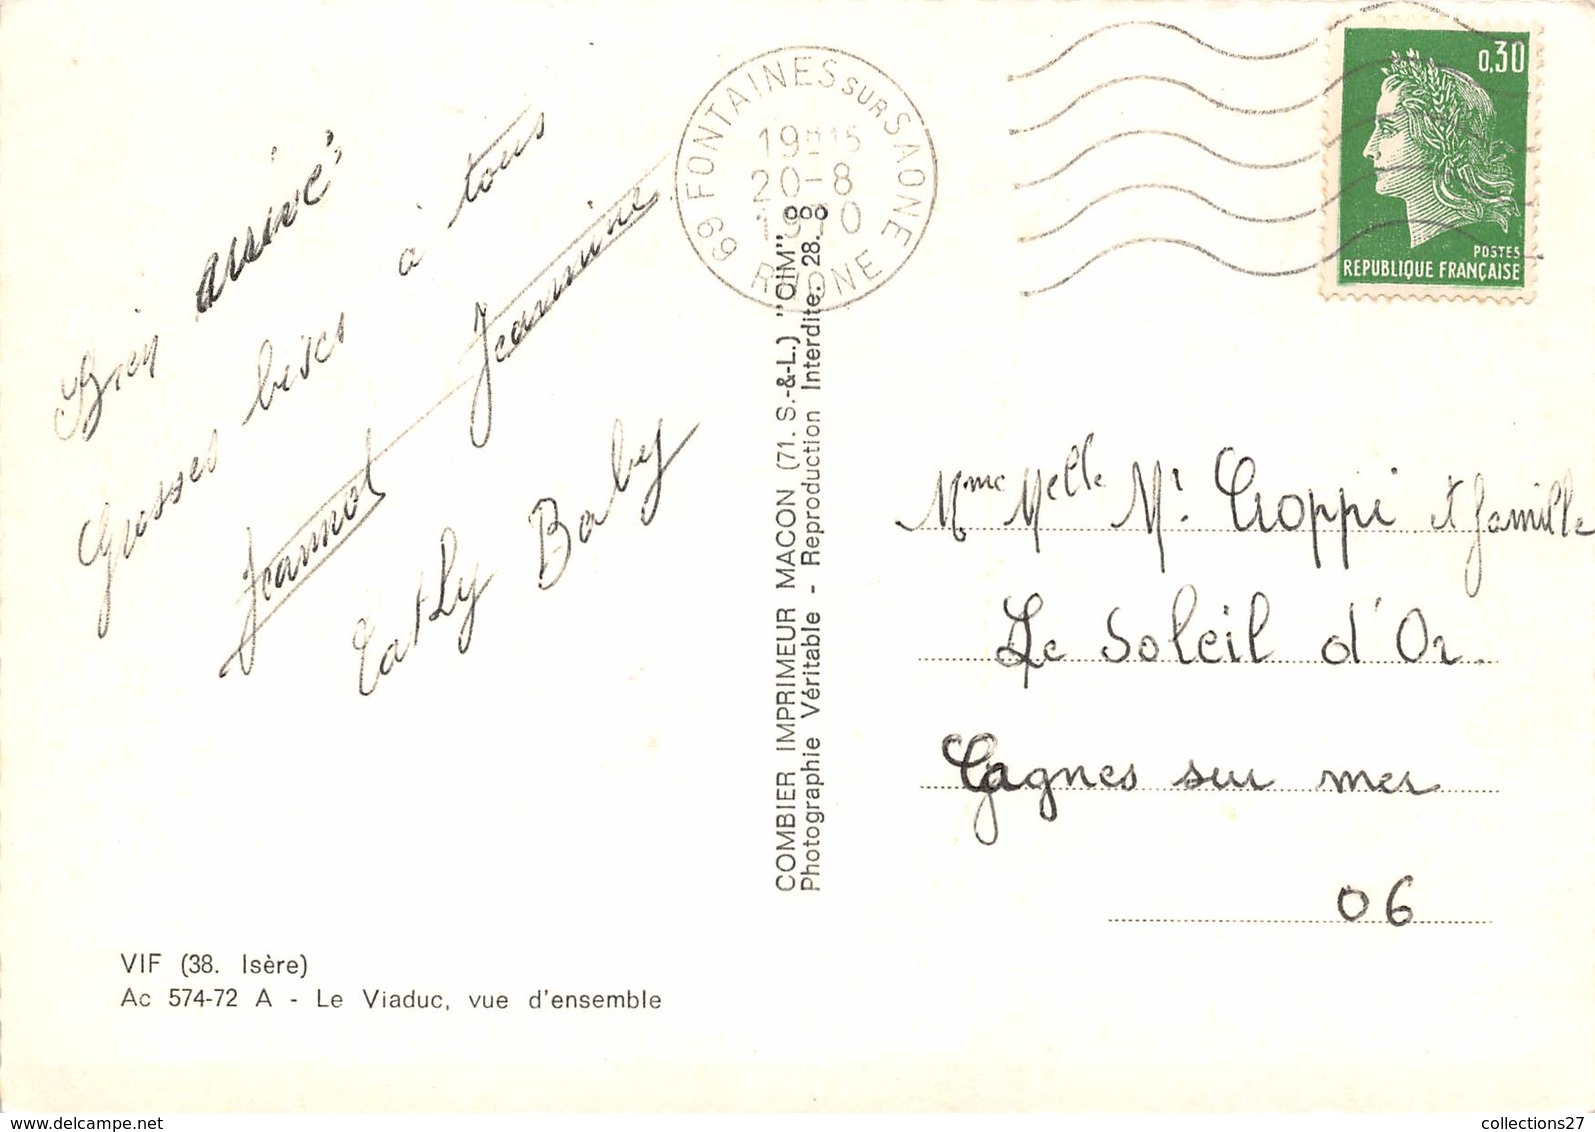 Bien arrivé
Grosses bises à tous
Jeannot Jeannine
Cathy Baby
VIF (38. Isère)
Ac 574-72 A - Le Viaduc, vue d'ensemble
COMBIER IMPRIMEUR MACON (71. S.-&-L.) "CIM"
Photographie Véritable - Reproduction Interdite. 28.
69 FONTAINES SUR SAONE
20-8
RHONE
0,30
POSTES
REPUBLIQUE FRANÇAISE
Mme Melle Mr. Croppi et famille
Le Soleil d'Or.
Cagnes sur mer
06
collections27